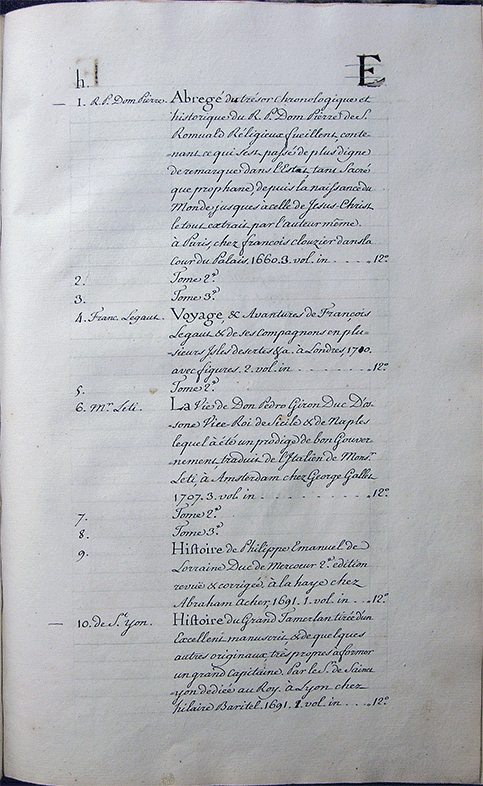 h. E
1. R. P. Dom Pierre. Abregé du trésor chronologique et
historique du R. P. Dom Pierre de S.
Romuald Réligieux fueillent, conte-
nant ce qui s'est passé de plus digne
de remarque dans l'Estat, tant Sacré
que prophane depuis la naissance du
Monde, jusques à celle de Jesus-Christ
le tout extrait par l'auteur même.
à Paris, chez françois clouzier dans la
Cour du Palais. 1660. 3. vol. in . . . . . 12º
2. Tome 2e
3. Tome 3e
4. Franc. Legaut. Voyage, & Avantures de François
Legaut & de ses Compagnons en plu-
sieurs Isles desertes &a. à Londres 1700.
avec figures. 2. vol. in . . . . . . . . 12º
5. Tome 2e
6. Mr. Leti. La Vie de Don Pedro Giron Duc D'os-
sone Vice-Roi de Sicile & de Naples
lequel à été un prodige de bon Gouver-
nement, traduit de l'Italien de Monsr.
Leti, à Amsterdam chez George Gallet
1707. 3. vol. in . . . . . . . . 12º
7. Tome 2e
8. Tome 3e
9. Histoire de Philippe Emanuel de
Lorraine Duc de Mercoeur 2e edition
revuë & corrigée à la haye chez
Abraham Acher, 1691. 1. vol. in . . . 12º
10. de St. Yon. Histoire du Grand Tamerlan tirée d'un
Excellent manuscrit, & de quelques
autres originaux, très propres a former
un grand Capitaine. Par le Sr. de Sainct
yon dediée au Roy. à Lyon chez
hilaire Baritel. 1691. 1. vol. in . . . . 12º